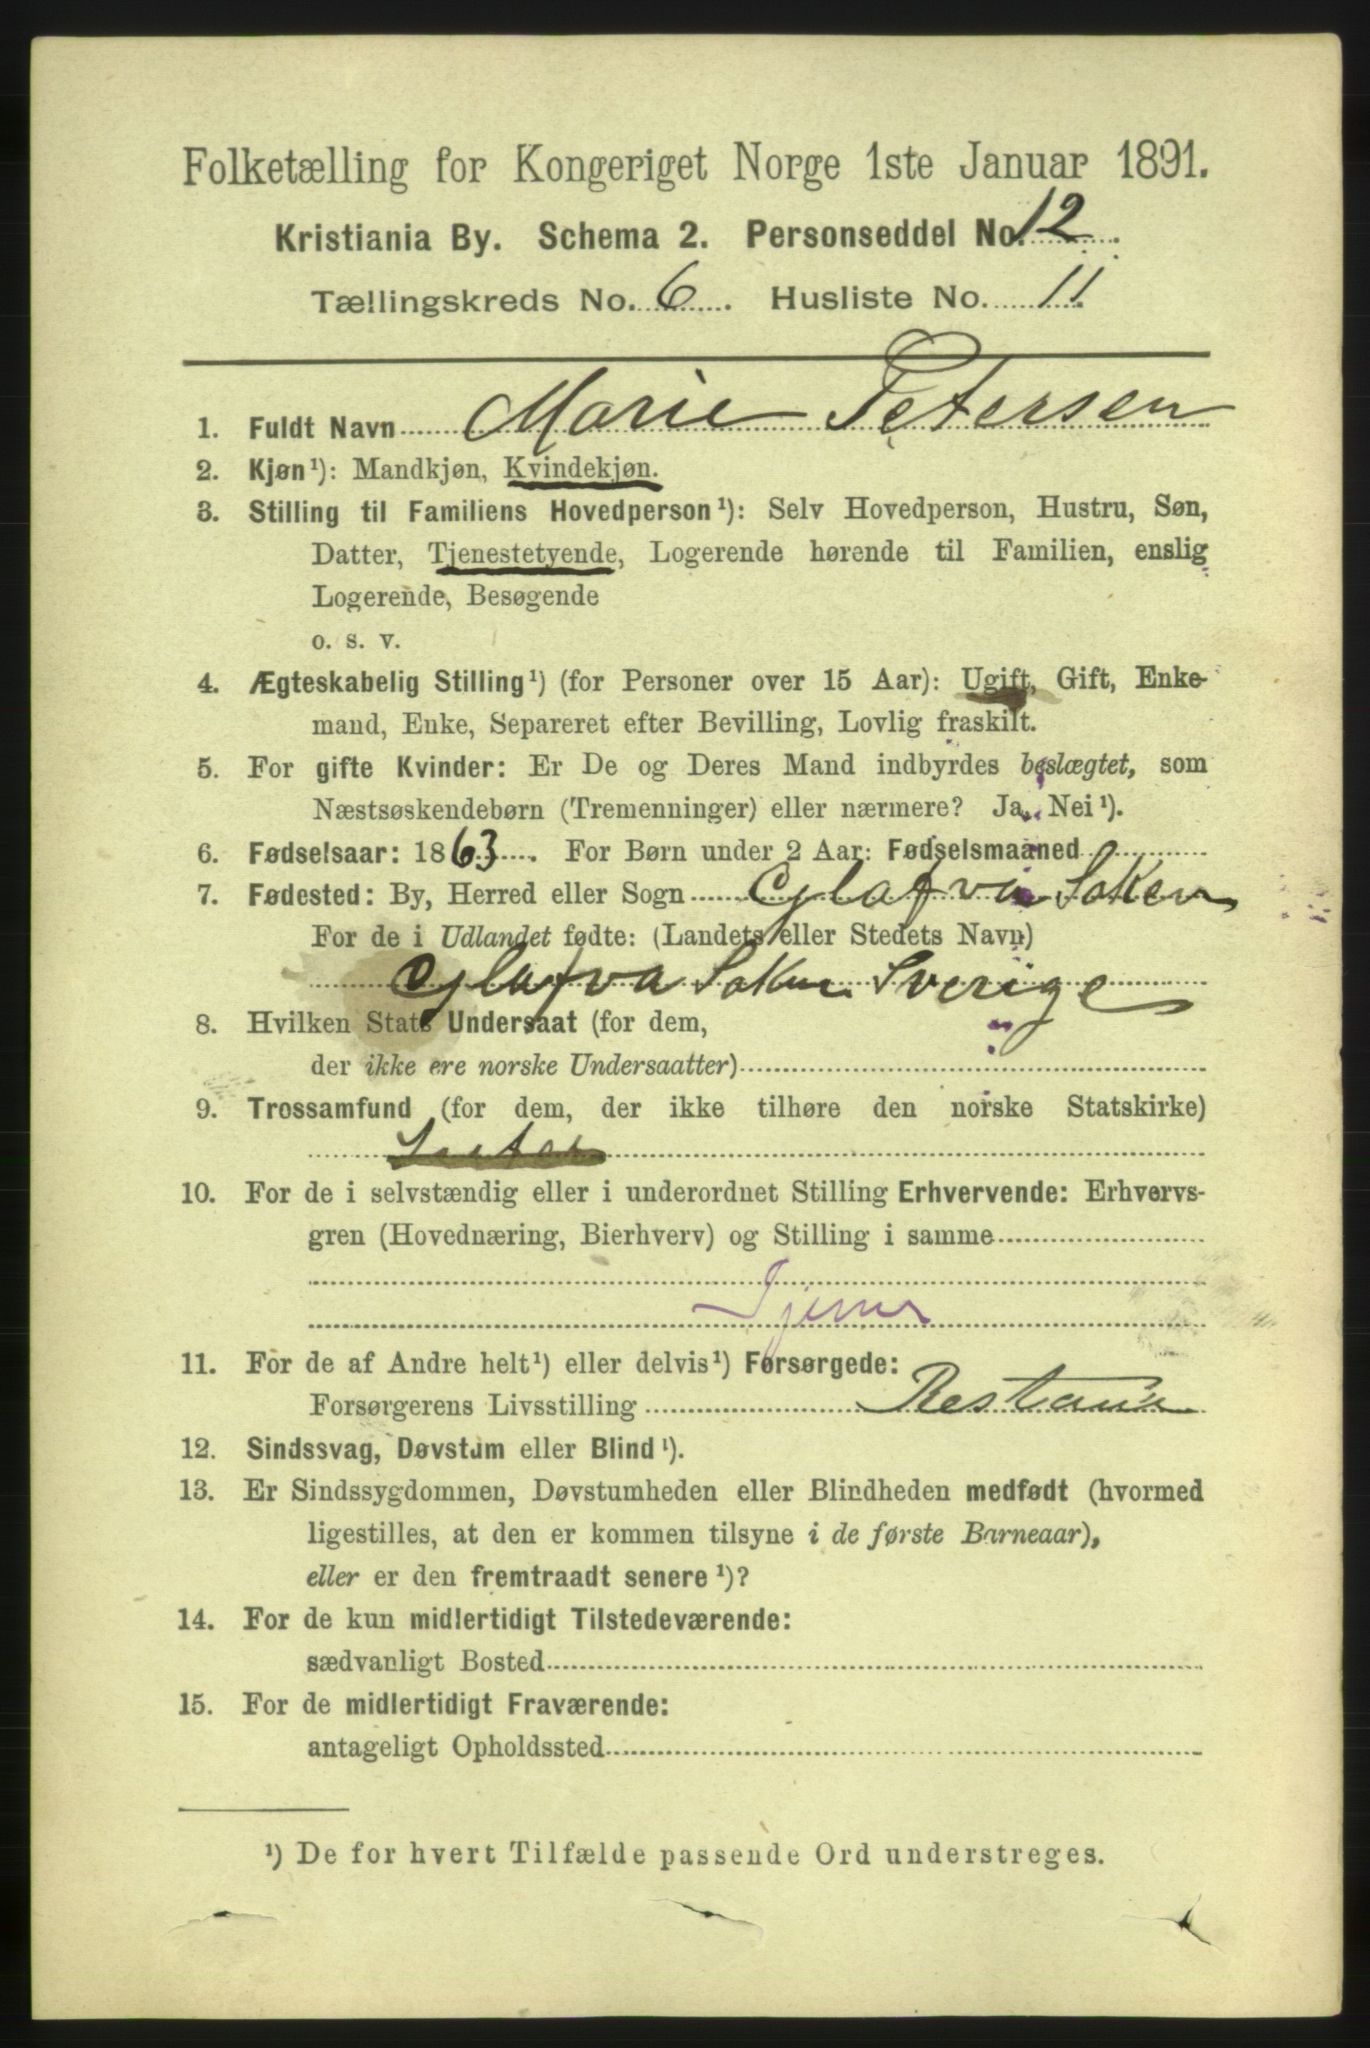 Folketælling for Kongeriget Norge 1ste Januar 1891.
Kristiania By. Schema 2. Personseddel No. 12.
Tællingskreds No. 6. Husliste No. 11.
1. Fuldt Navn Marie Petersen
2. Kjøn¹): Mandkjøn, Kvindekjøn.
3. Stilling til Familiens Hovedperson¹): Selv Hovedperson, Hustru, Søn,
Datter, Tjenestetyende, Logerende hørende til Familien, enslig
Logerende, Besøgende
o. s. v.
4. Ægteskabelig Stilling¹) (for Personer over 15 Aar): Ugift, Gift, Enke-
mand, Enke, Separeret efter Bevilling, Lovlig fraskilt.
5. For gifte Kvinder: Er De og Deres Mand indbyrdes beslægtet, som
Næstsøskendebørn (Tremenninger) eller nærmere? Ja, Nei¹).
6. Fødselsaar: 1863. For Børn under 2 Aar: Fødselsmaaned
7. Fødested: By, Herred eller Sogn Glafva Soken
For de i Udlandet fødte: (Landets eller Stedets Navn)
Glafva Soken Sverige
8. Hvilken Stats Undersaat (for dem,
der ikke ere norske Undersaatter)
9. Trossamfund (for dem, der ikke tilhøre den norske Statskirke)
10. For de i selvstændig eller i underordnet Stilling Erhvervende: Erhvervs-
gren (Hovednæring, Bierhverv) og Stilling i samme
11. For de af Andre helt¹) eller delvis¹) Forsørgede:
Forsørgerens Livsstilling Restaur
12. Sindssvag, Døvstum eller Blind¹).
13. Er Sindssygdommen, Døvstumheden eller Blindheden medfødt (hvormed
ligestilles, at den er kommen tilsyne i de første Barneaar),
eller er den fremtraadt senere¹)?
14. For de kun midlertidigt Tilstedeværende:
sædvanligt Bosted
15. For de midlertidigt Fraværende:
antageligt Opholdssted
¹) De for hvert Tilfælde passende Ord understreges.